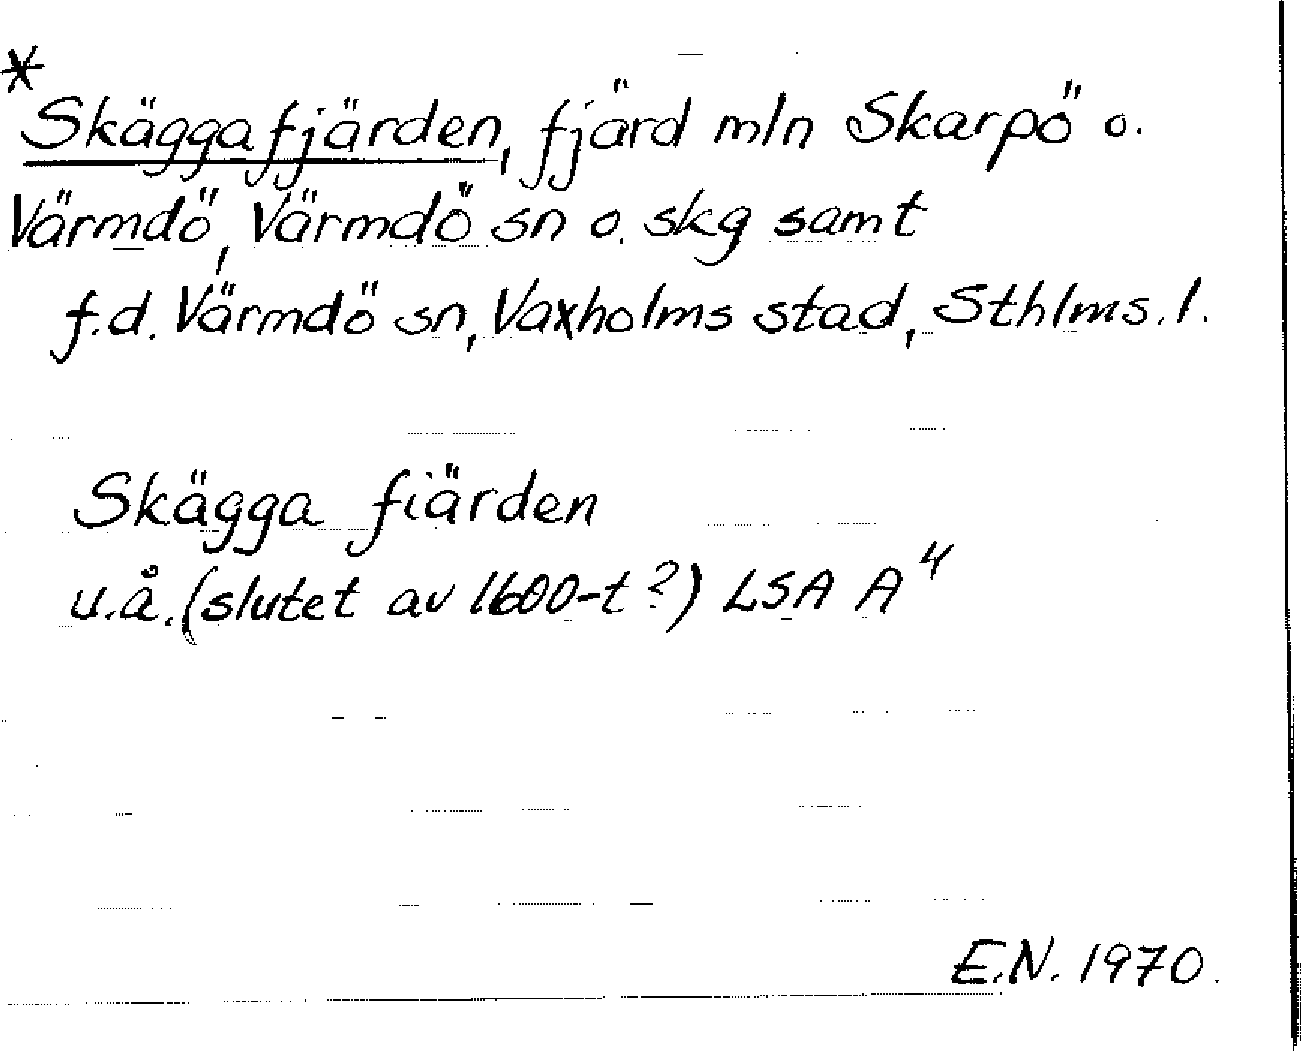 *
Skäggafjärden, fjärd mln Skarpö o.
Värmdö, Värmdö sn o. skg samt
f.d. Värmdö sn, Vaxholms stad, Sthlms. l.
Skägga fiärden
u.å. (slutet av 1600-t?) LSA A⁴
E.N. 1970.